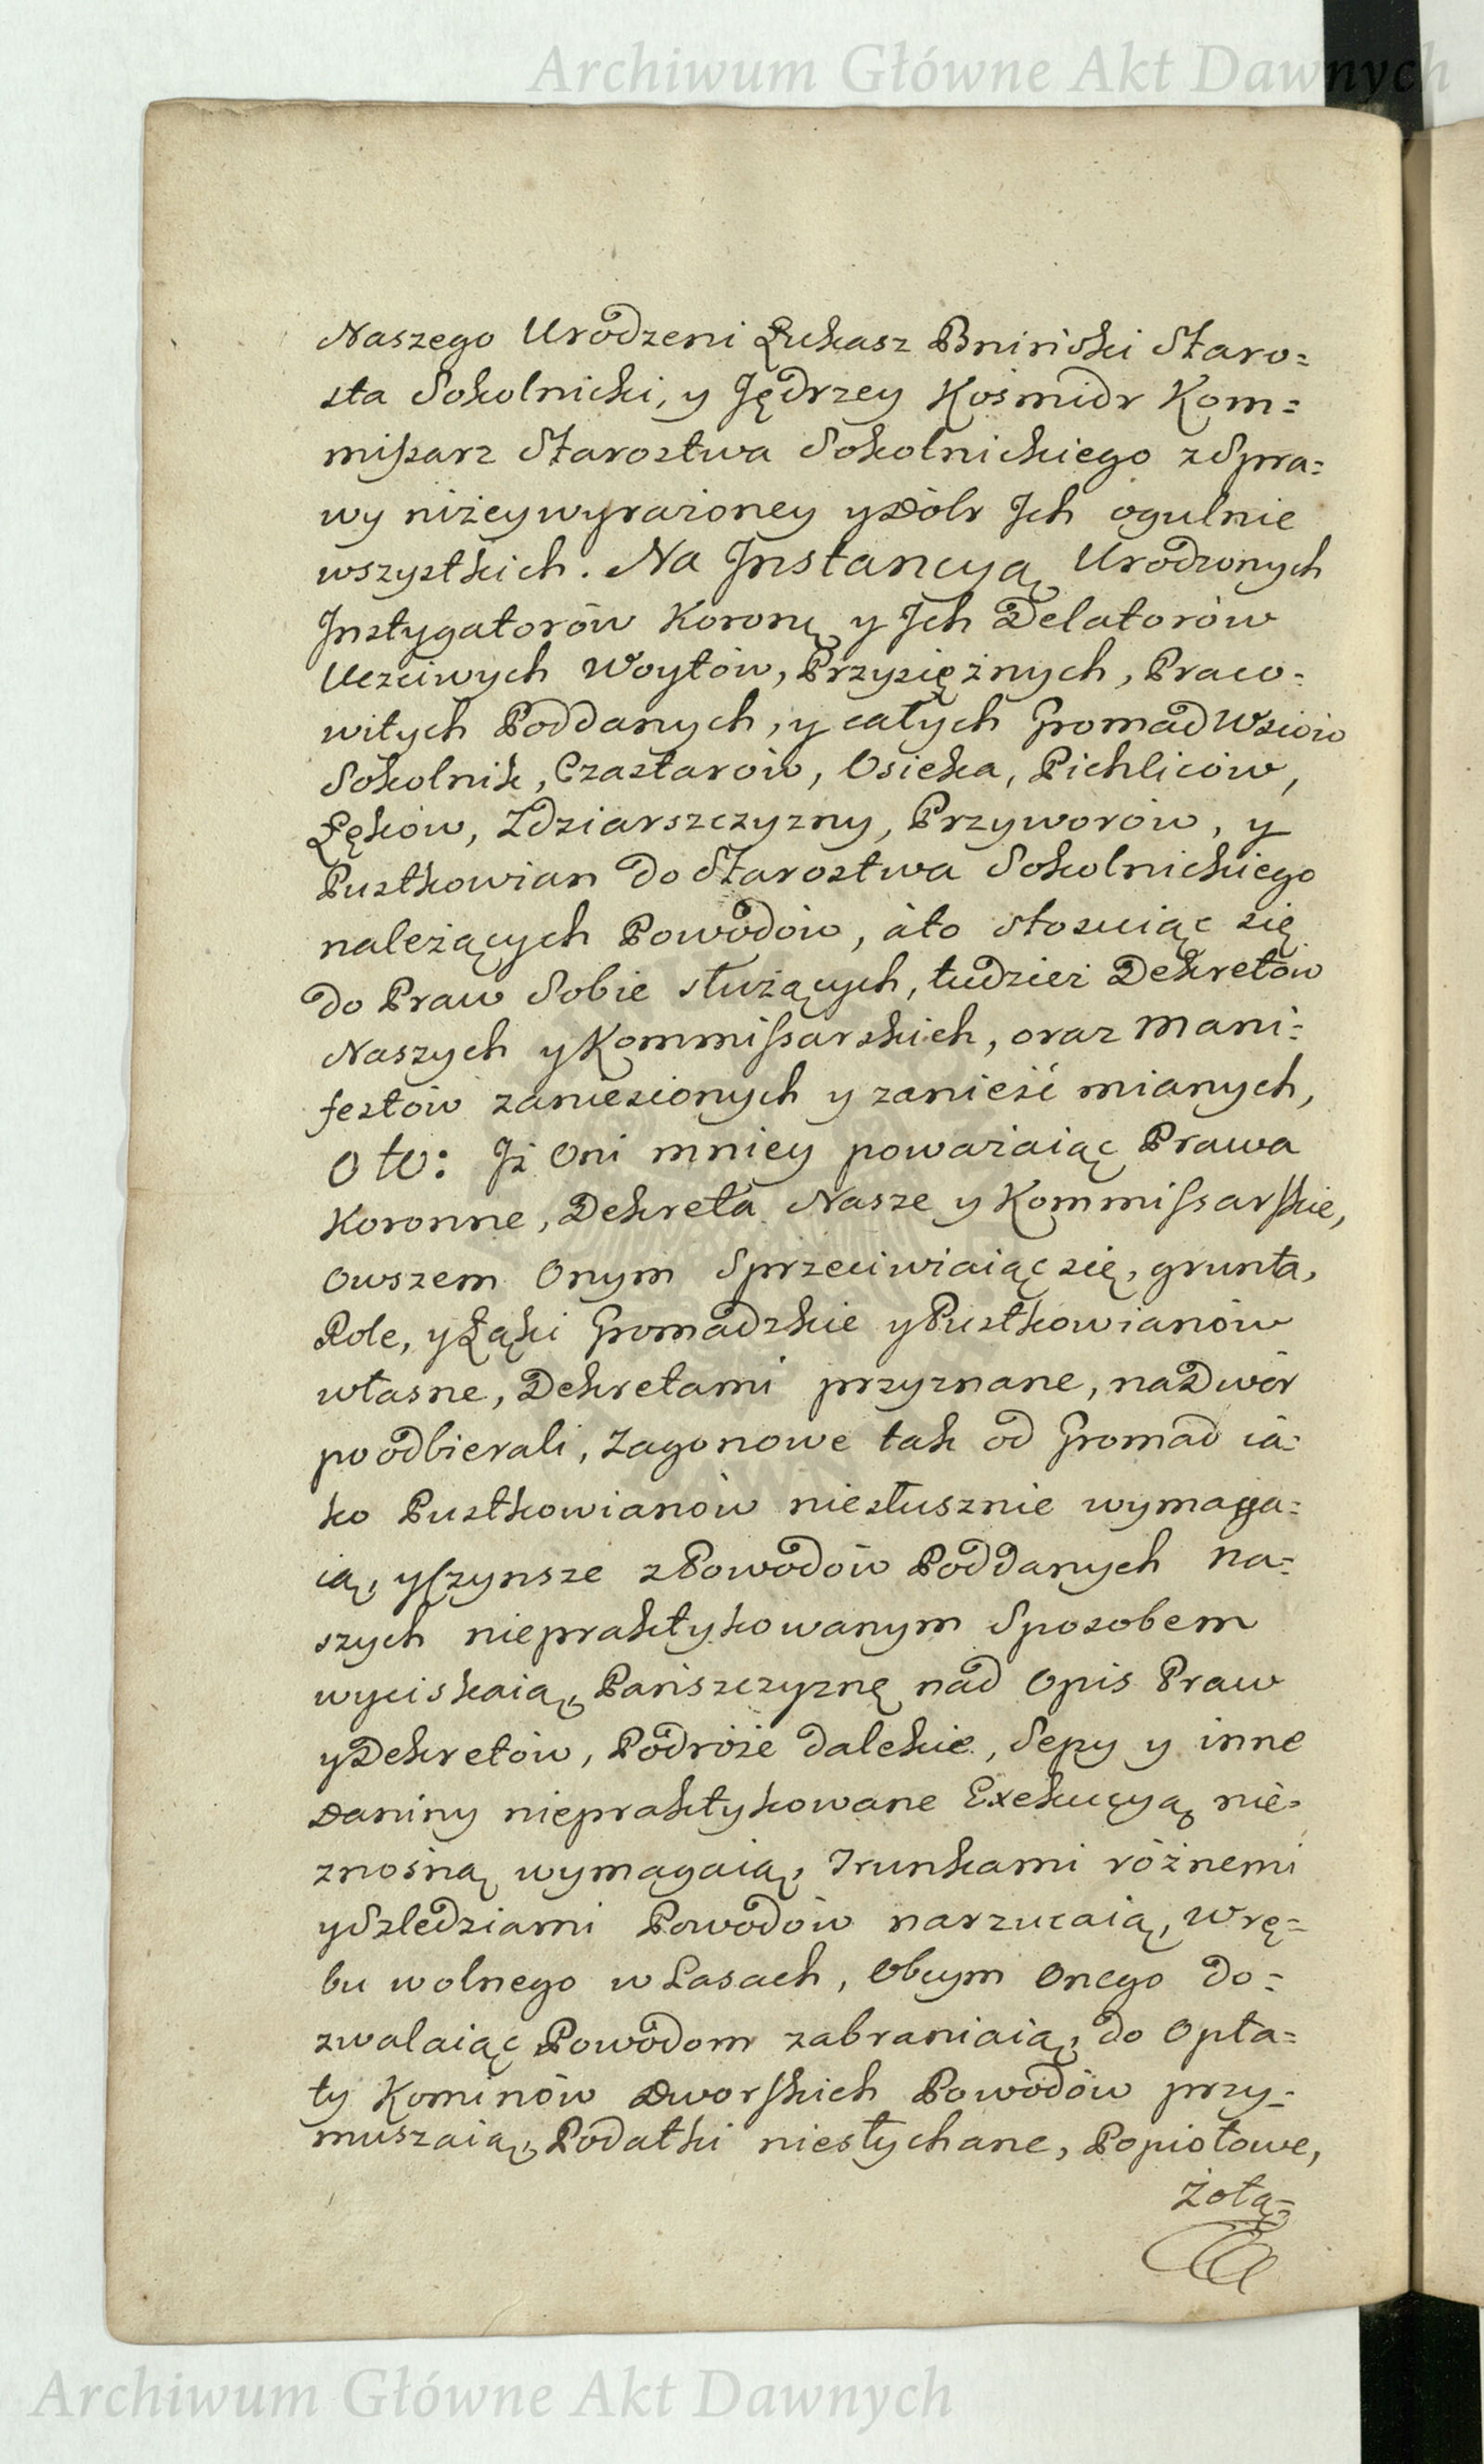 Archiwum Główne Akt Dawnych
Naszego Urodzeni Łukasz Bniński Staro=
sta Sokolnicki, y Jędrzey Kośmidr Kom=
mißarz Starostwa Sokolnickiego z Spra=
wy niżeywyrażoney y Dóbr Jch ogulnie
wszystkich. Na Jnstancyą Urodzonych
Jnstygatorów Korony y Jch Delatorów
Uczciwych Woytów, Przysiężnych, Praco=
witych Poddanych, y całych Gromad Wsiów
Sokolnik, Czastarów, Osieka, Pichliców,
Łęków, Zdziarszczyzny, Przyworów, y
Pustkowian do Starostwa Sokolnickiego
należących Powodów, á to stosuiąc się
do Praw Sobie służących, tudzież Dekretów
Naszych y Kommißarskich, oraz Mani=
festów zaniesionych y zanieść mianych,
O to: Jż Oni mniey poważaiąc Prawa
Koronne, Dekreta Nasze y Kommißarskie,
Owszem Onym Sprzeciwiaiąc się, grunta,
Role, y Łąki Gromadzkie y Pustkowianów
własne, Dekretami przyznane, na Dwór
poodbierali, Zagonowe tak od Gromad ia=
ko Pustkowianów niesłusznie wymaga=
ią, y Czynsze z Powodów Poddanych na=
szych niepraktykowanym Sposobem
wyciskaią, Pańszczyznę nad Opis Praw
y Dekretów, Podróże dalekie, Sepy y inne
Daniny niepraktykowane Exekucyą nie=
znośną wymagaią, Trunkami różnemi
y Szledziami Powodów narzucaią, Wrę=
bu wolnego w Lasach, Obcym Onego do=
zwalaiąc Powodom zabraniaią, do Opła=
ty Kominów Dworskich Powodów przy=
muszaią, Podatki niesłychane, Popiołowe,
Żołą=
Archiwum Główne Akt Dawnych